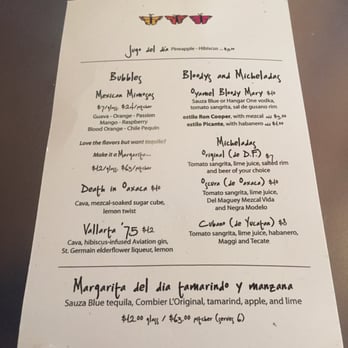 Jugo del día Pineapple - Hibiscus
Bubbles
Mexican Mimosas
$7/glass $24/pitcher
Guava - Orange - Passion
Mango - Raspberry
Blood Orange - Chile Pequin
Love the flavors but want tequila?
Make it a Margarita...
$12/glass $63/pitcher
Death in Oaxaca $10
Cava, mezcal-soaked sugar cube,
lemon twist
Vallarta '75 $12
Cava, hibiscus-infused Aviation gin,
St. Germain elderflower liqueur, lemon
Bloodys and Micheladas
Oyamel Bloody Mary $10
Sauza Blue or Hangar One vodka,
tomato sangrita, sal de gusano rim
estilo Ron Cooper, with mezcal add $3.00
estilo Picante, with habanero add
Micheladas
Original (de D.F.) $7
Tomato sangrita, lime juice, salted rim
and beer of your choice
Oscura (de Oaxaca) $10
Tomato sangrita, lime juice,
Del Maguey Mezcal Vida
and Negra Modelo
Cubano (de Yucatan) $8
Tomato sangrita, lime juice, habanero,
Maggi and Tecate
Margarita del dia tamarindo y manzana
Sauza Blue tequila, Combier L'Original, tamarind, apple, and lime
$12.00 glass / $63.00 pitcher (serves 6)